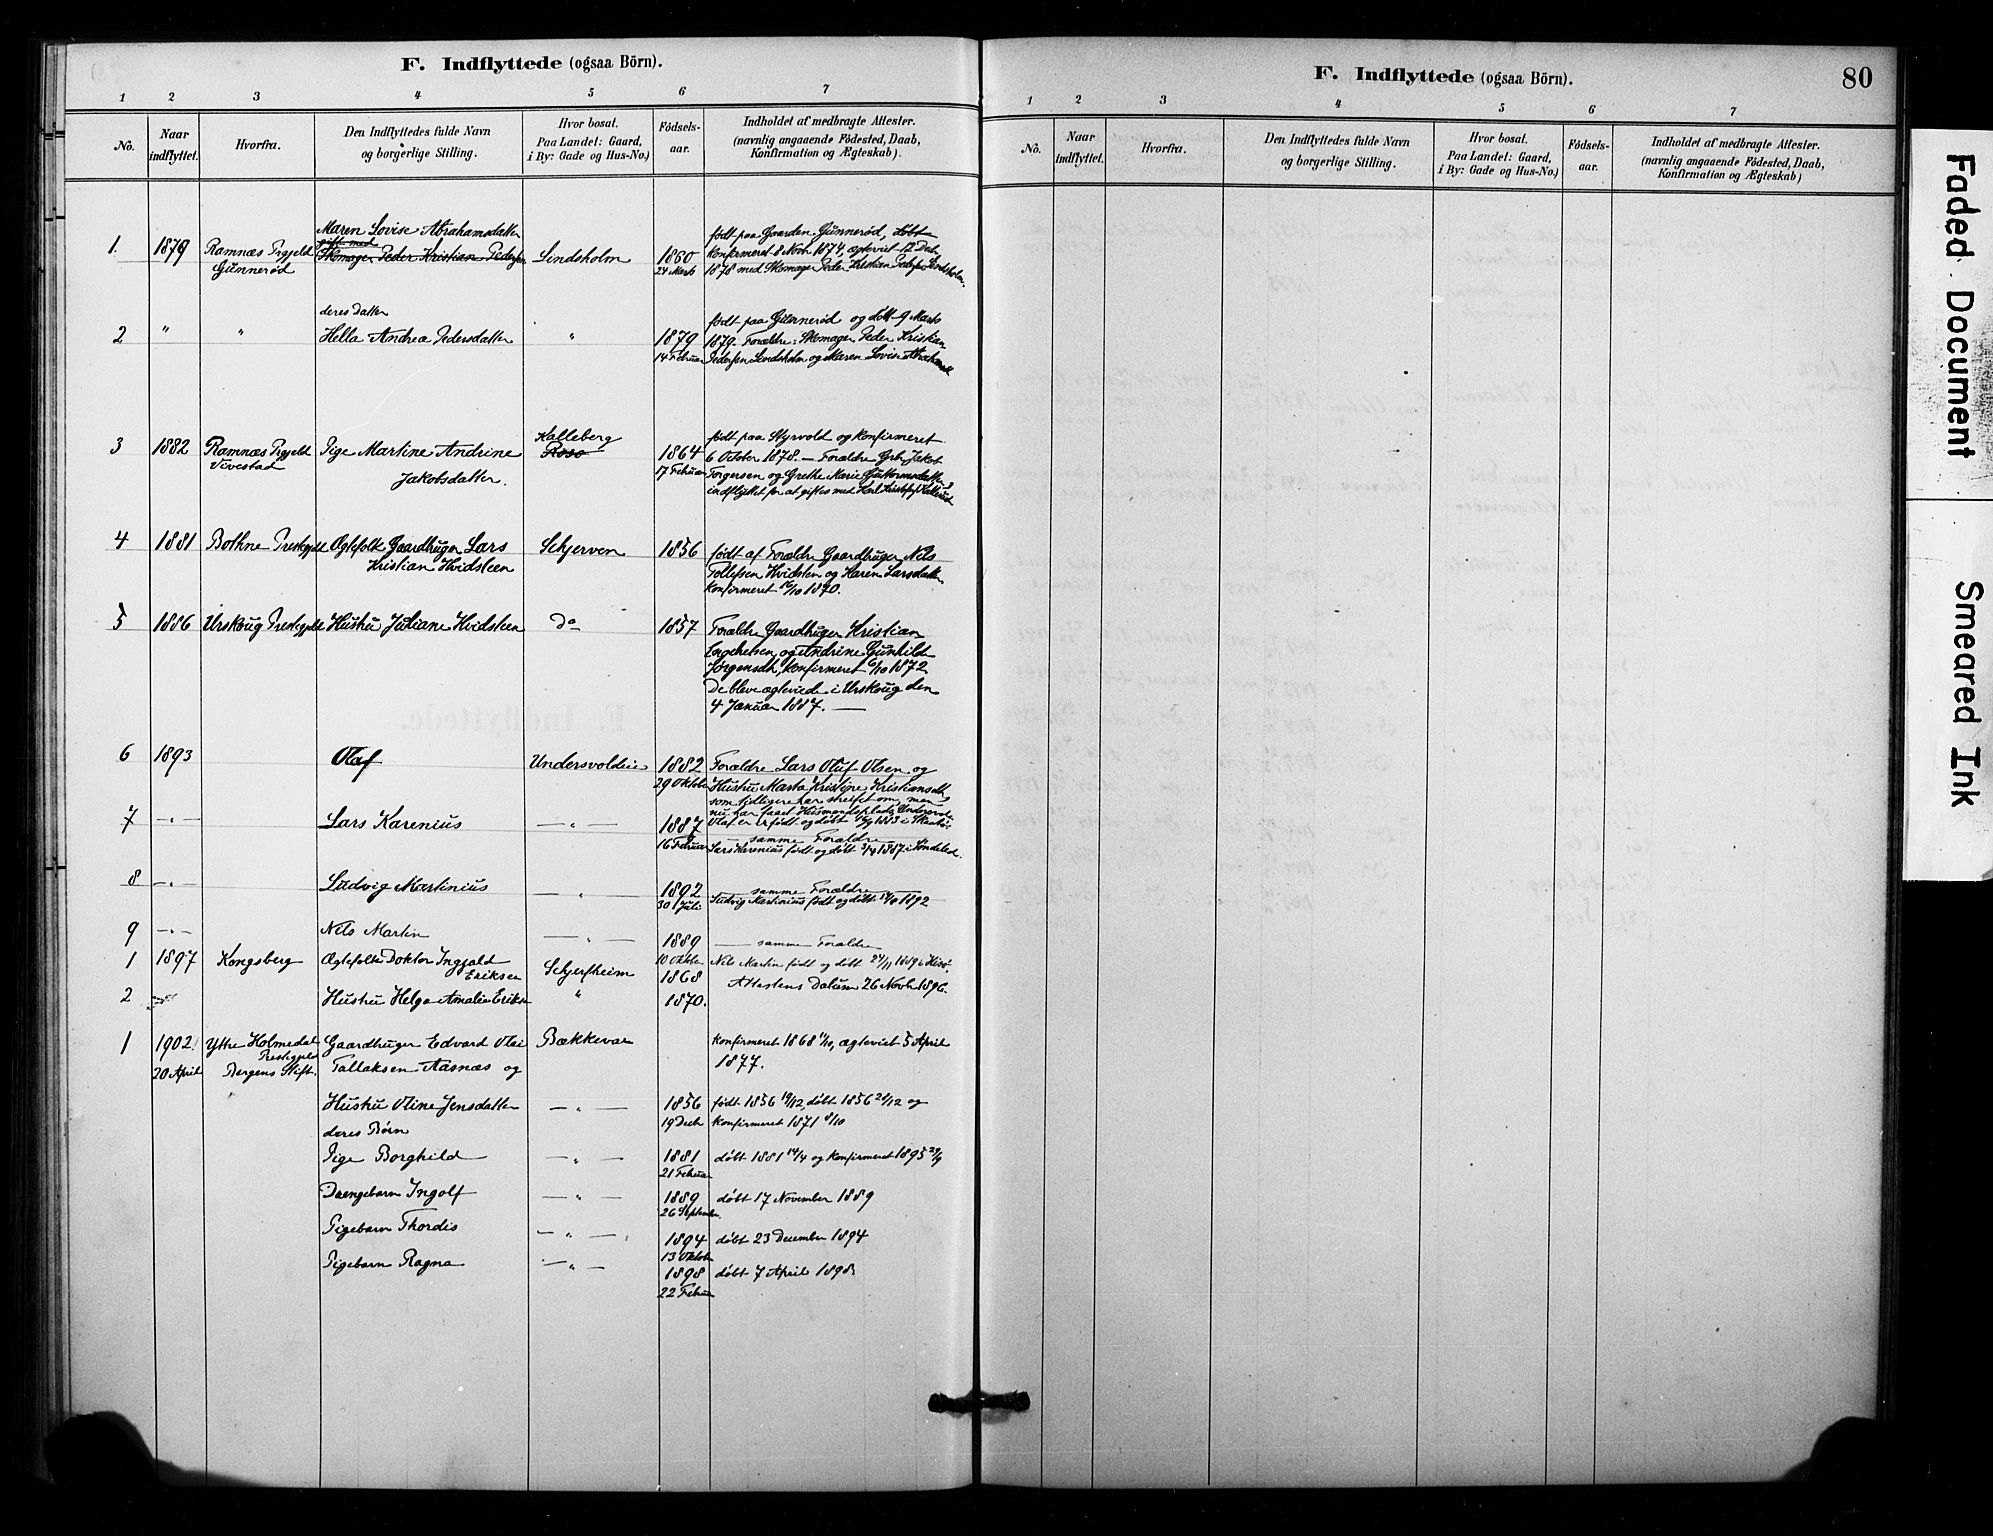 F. Indflyttede (ogsaa Börn).
1 2 3 4 5 6 7
No. Naar indflyttet. Hvorfra. Den Indflyttedes fulde Navn og borgerlige Stilling. Hvor bosat. Paa Landet: Gaard, i By: Gade og Hus-No.) Födsels-aar. Indholdet af medbragte Attester. (navnlig angaaende Födested, Daab, Konfirmation og Ægteskab).
Maren Lovise Abrahamsdatter
gift med
1. 1879 Ramnæs Prgjeld Skomager Peder Kristian Pedersen Lindsholm 1860
Gunnerød 24 Marts
født paa Gaarden Gunnerød, døbt
konfirmeret 8 Novb 1874, ægteviet 12 Dec
1878 med Skomager Peder Kristian Pedersen Lindsholm.
deres Datter
2 " " Hella Andrea Pedersdatter " 1879
14 Februar
født paa Gunnerød og døbt 9 Marts
1879. Forældre: Skomager Peder Kristian
Pedersen Lindsholm og Maren Lovise Abrahamsdt
Kalleberg
3 1882 Ramnæs Prgjeld Pige Martine Andrine Roso 1864
Vivestad Jakobsdatter. 17 Februar
født paa Styrvold og konfirmeret
6 October 1878. — Forældre Grbr Jakob
Torgersen og Grethe Marie Guttormsdatter,
indflyttet for at giftes med Karl Kristofs Kalleberg
4 1881 Bothne Prestegjeld Ægtefolk Gaardbruger Lars Schjerven 1856
Kristian Hvidsteen
født af Forældre Gaardbruger Nils
Tollefsen Hvidsten og Karen Larsdatter
konfirmeret 16/10 1870.
5 1886 Urskoug Prestegjeld Hustru Juliane Hvidsteen do 1857
Forældre Gaardbruger Kristian
Engebretsen og Andrine Gunhild
Jørgensdt, konfirmeret 6/10 1872
De bleve ægteviede i Urskoug den
4 Januar 1887. —
6 1893 Olaf Undersvoldeie 1882
29 Oktober
Forældre Lars Oluf Olsen og
Hustru Marta Kristine Kristiansdt,
som tidligere har streifet om, men
nu har faaet Husmandsplads Undersvold.
7 —"— Lars Karenius —"— 1887
16 Februar
— samme Forældre —
Lars Karenius født og døbt 3/4 1887 i Søndeled.
8 —"— Ludvig Martinius —"— 1892
30 Juli
— samme Forældre —
Ludvig Martinius født og døbt 1892
9 —"— Nils Martin —"— 1889
10 Oktober
— samme Forældre
Nils Martin født og døbt 24/11 1889 i Hisø.
1 1897 Kongsberg Ægtefolk Doktor Ingjald Schjerfheim 1868
Eriksen
Attestens Datum 26 Novb 1896.
2 Hustru Helga Amalie Eriksen " 1870.
1 1902 Ytre Holmedal Gaardbruger Edvard Olai Bækkevar
Prestegjeld
20 April Bergens Stift. Tallaksen Aasnæs og
konfirmeret 1868 11/10, ægteviet 5 April
1877.
Hustru Oline Jensdatter —"— 1856
19 Decbr
født 1856 19/12, døbt 1856 26/12 og
konfirmeret 1871 8/10
deres Børn
Pige Borghild —"— 1881 døbt 1881 14/4 og konfirmeret 1895 29/9
21 Februar
Drengebarn Ingolf —"— 1889 døbt 17 November 1889
26 September
Pigebarn Thordis —"— 1894 døbt 23 December 1894
13 Oktober
Pigebarn Ragna —"— 1898 døbt 7 April 1898
22 Februar
F. Indflyttede (ogsaa Börn).
80
1 2 3 4 5 6 7
No. Naar indflyttet. Hvorfra. Den Indflyttedes fulde Navn og borgerlige Stilling. Hvor bosat. Paa Landet: Gaard, i By: Gade og Hus-No.) Födsels-aar. Indholdet af medbragte Attester. (navnlig angaaende Födested, Daab, Konfirmation og Ægteskab)
Faded Document
Smeared Ink